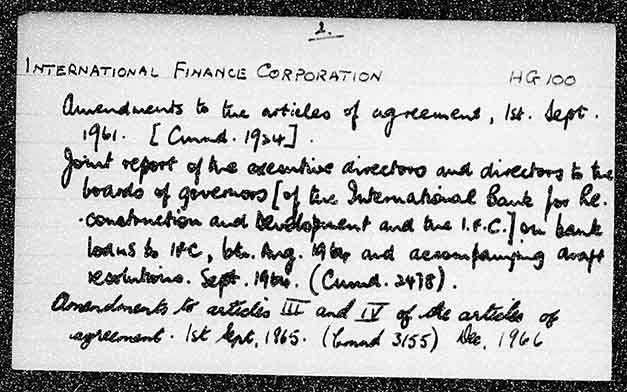 2.
INTERNATIONAL FINANCE CORPORATION HG 100
Amendments to the articles of agreement, 1st. Sept.
1961. [Cmnd. 1924].
Joint report of the executive directors and directors to the
boards of governors [of the International Bank for Re-
-construction and Development and the I.F.C.] on bank
loans to IFC, Aug. 1964, and accompanying draft
resolutions. Sept. 1964. (Cmnd. 2478).
Amendments to articles III and IV of the articles of
agreement. 1st Sept, 1965. (Cmnd 3155) Dec, 1966